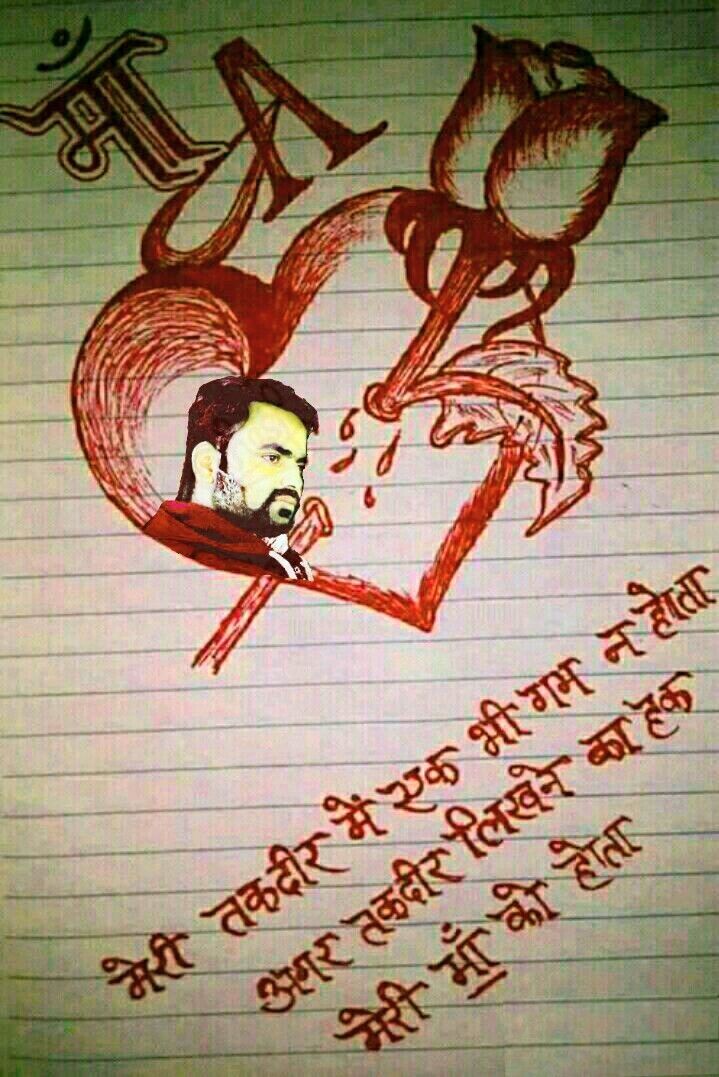 माँ A
मेरी तकदीर में एक भी गम न होता
अगर तकदीर लिखने का हक
मेरी माँ को होता